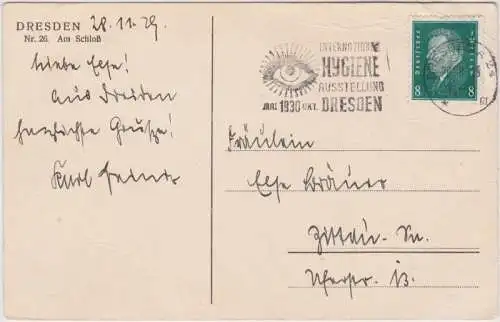 DRESDEN
Nr. 26. Am Schloß
28.11.29.
Liebe Else!
Aus Dresden
herzlichste Grüße!
Karl Heinz
INTERNATIONALE
HYGIENE
AUSSTELLUNG
MAI 1930 OKT. DRESDEN
Deutsches Reich
8 8
Fräulein
Else Bräuer
Zittau-Sa.